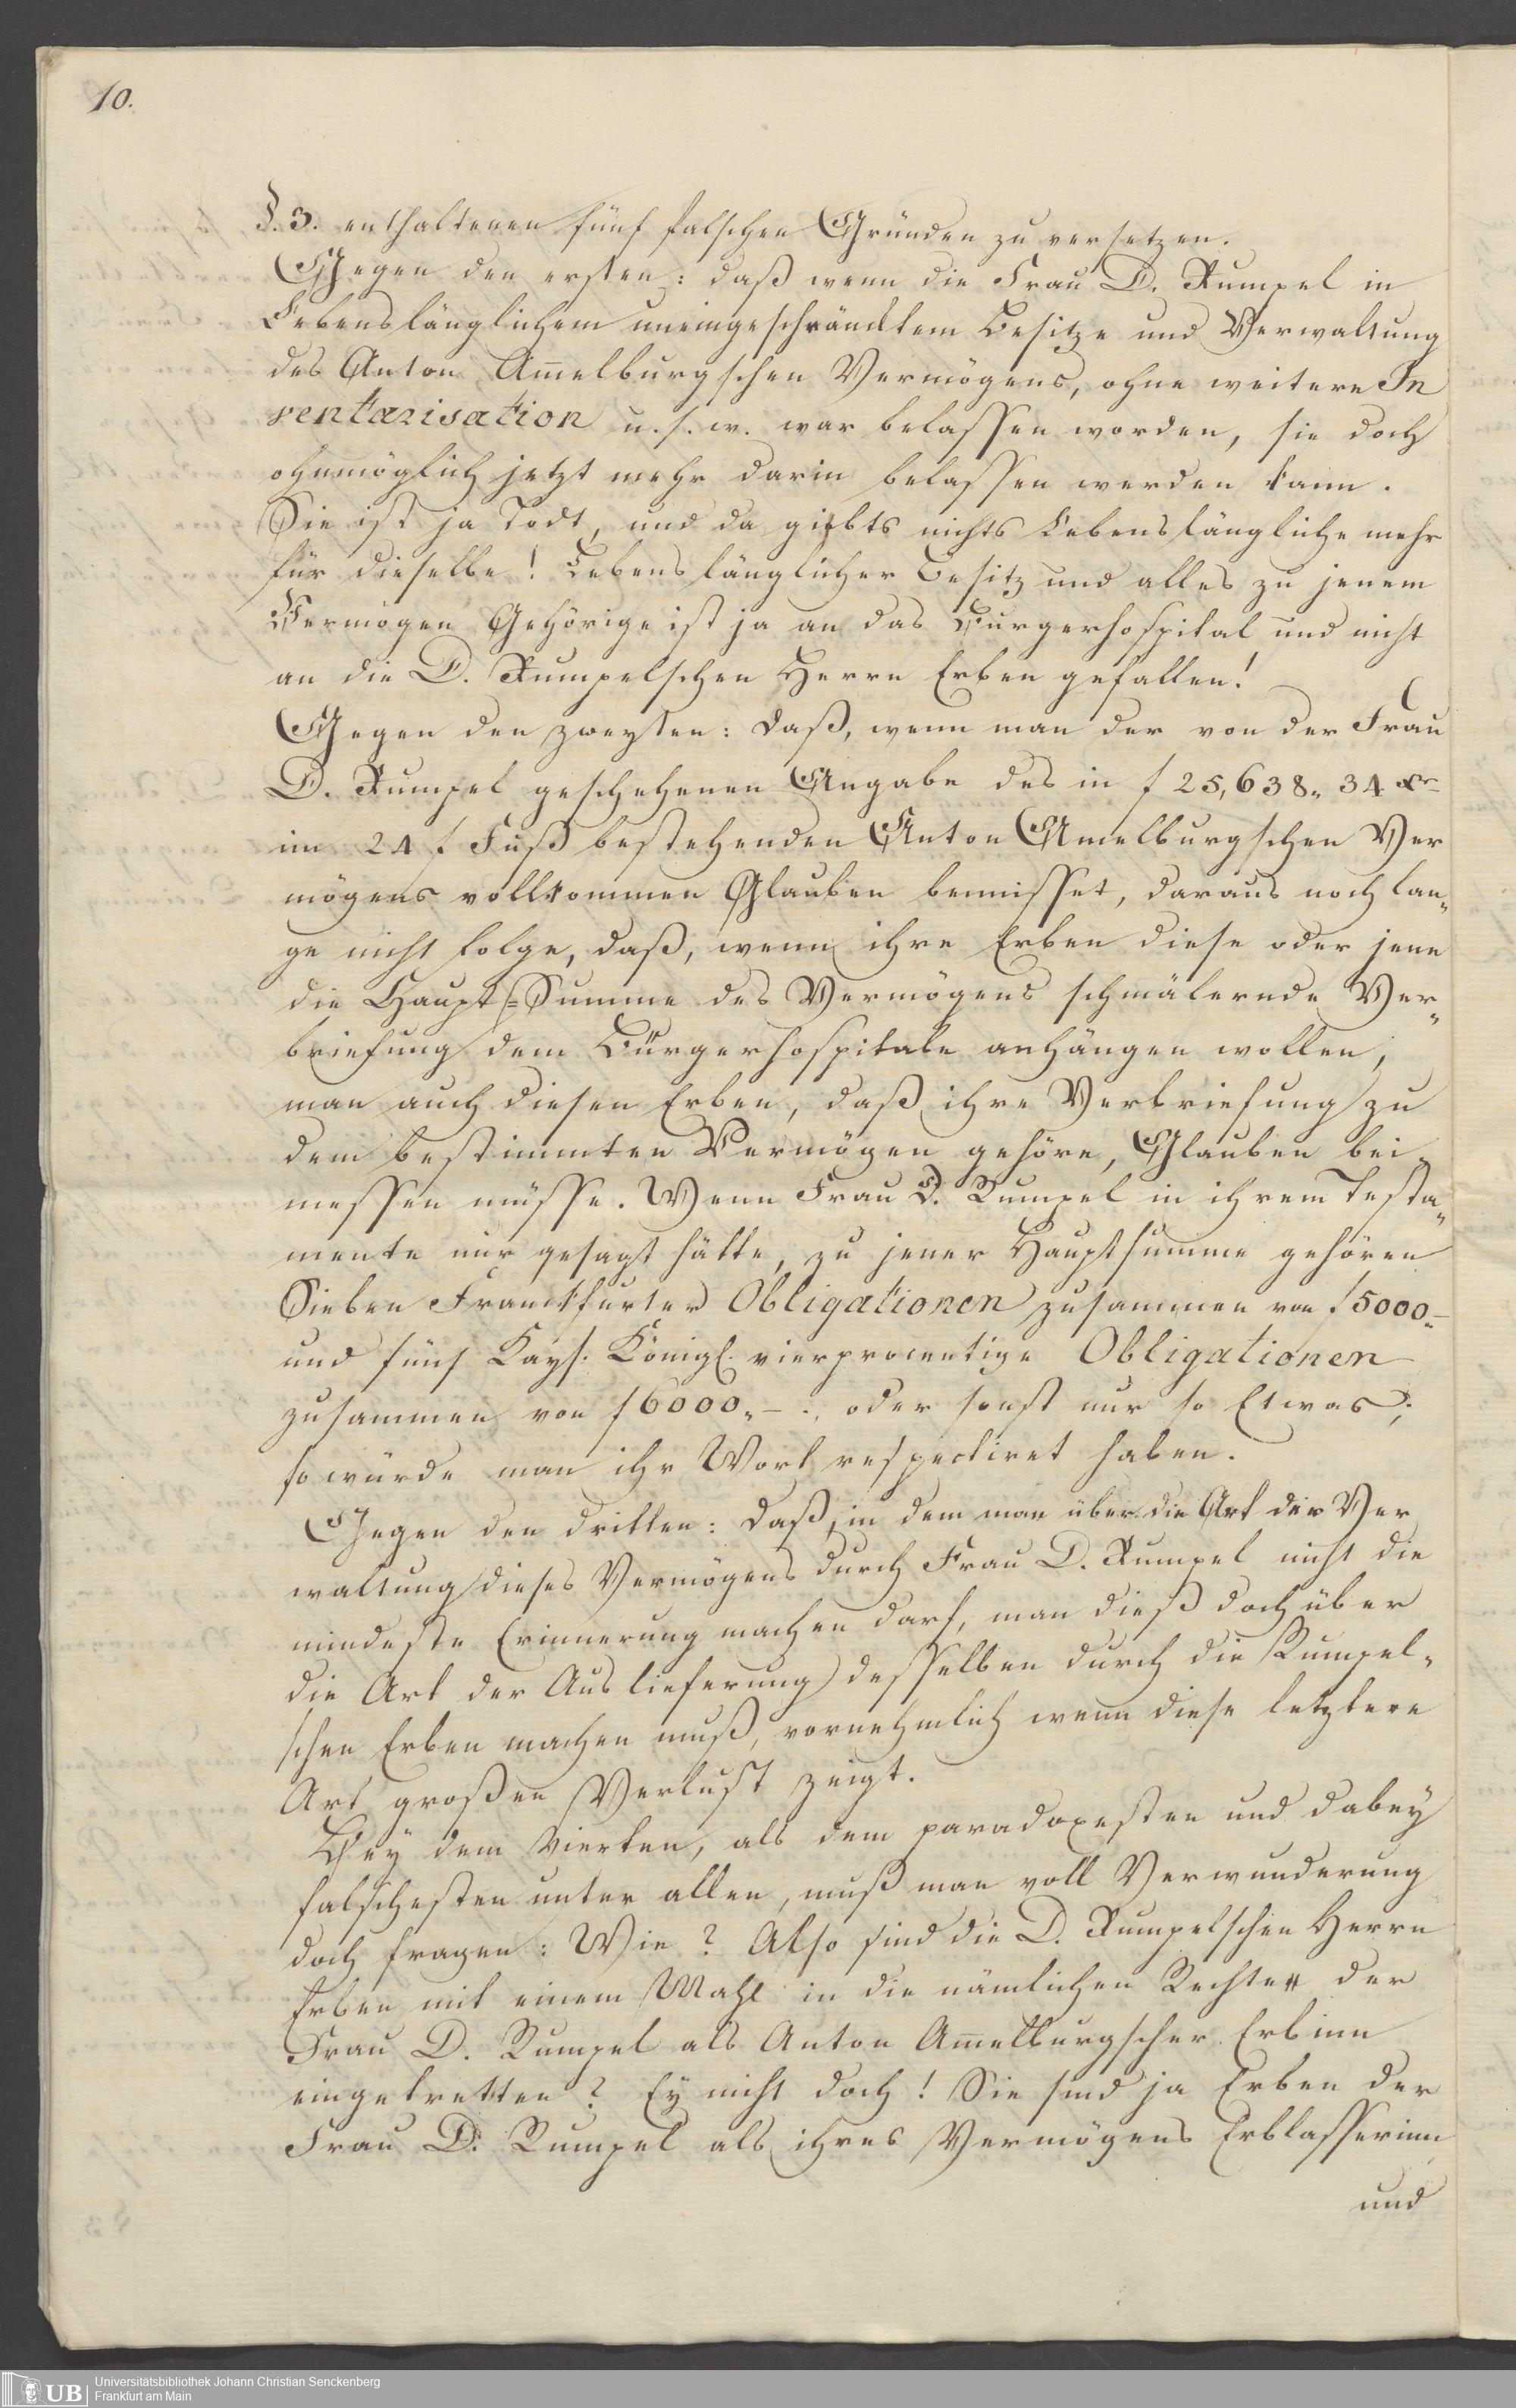 10.
§. 3. enthaltenen fünf falschen Gründen zu versetzen.
Gegen den ersten: daß wenn die Frau D. Rumpel in
Lebenslänglichem uneingeschräncktem Besitze und Verwaltung
des Anton Am̅elburgschen Vermögens, ohne weitere In
ventarisation u. s. w. war belassen worden, sie doch
ohnmöglich jetzt mehr darin belassen werden kann.
Sie ist ja Todt, und da giebts nichts Lebenslängliche mehr
für dieselbe! Lebenslänglicher Besitz und alles zu jenem
Vermögen Gehörige ist ja an das Bürgerhospital und nicht
an die D. Rumpelschen Herrn Erben gefallen!
Gegen den zweyten: daß, wenn man der von der Frau
D. Rumpel geschehenen Angabe des in f 25,638„ 34 xr
im 24 f. Fuß bestehenden Anton Amelburgschen Ver
mögens vollkommen Glauben bemisset, daraus noch lan„
ge nicht folge, daß, wenn ihre Erben diese oder jene
die Haupt=Summe des Vermögens schmälernde Ver„
briefung dem Bürgerhospitale anhängen wollen,
man auch diesen Erben, daß ihre Verbriefung zu
dem bestimmten Vermögen gehöre, Glauben bei„
messen müsse. Wenn Frau D. Rumpel in ihrem Testa„
mente nur gesagt hätte, zu jener Hauptsumme gehören
Sieben Franckfurter Obligationen zusammen von f 5000„-
und fünf Kays. Königl. vierprocentige Obligationen
zusammen von f 6000„-., oder sonst nur so Etwas;
so würde man ihr Wort respectiret haben.
Gegen den dritten: Daß, in dem man über die Art der Ver
waltung dieses Vermögens durch Frau D. Rumpel nicht die
mindeste Erinnerung machen darf, man dieß doch über
die Art der Auslieferung desselben durch die Rumpel„
schen Erben machen muß, vornehmlich wenn diese letztere
Art großen Verlust zeigt.
Bey dem Vierten, als dem paradoxesten und dabey
falschesten unter allen, muß man voll Verwunderung
doch fragen: Wie? Also sind die D. Rumpelschen Herrn
Erben mit einem Mahl in die nämlichen Rechte der
Frau D. Rumpel als Anton Am̅elburgscher Erbinn
eingetretten? Ey nicht doch! Sie sind ja Erben der
Frau D. Rumpel als ihres Vermögens Erblasserinn
und
UB Universitätsbibliothek Johann Christian Senckenberg
Frankfurt am Main